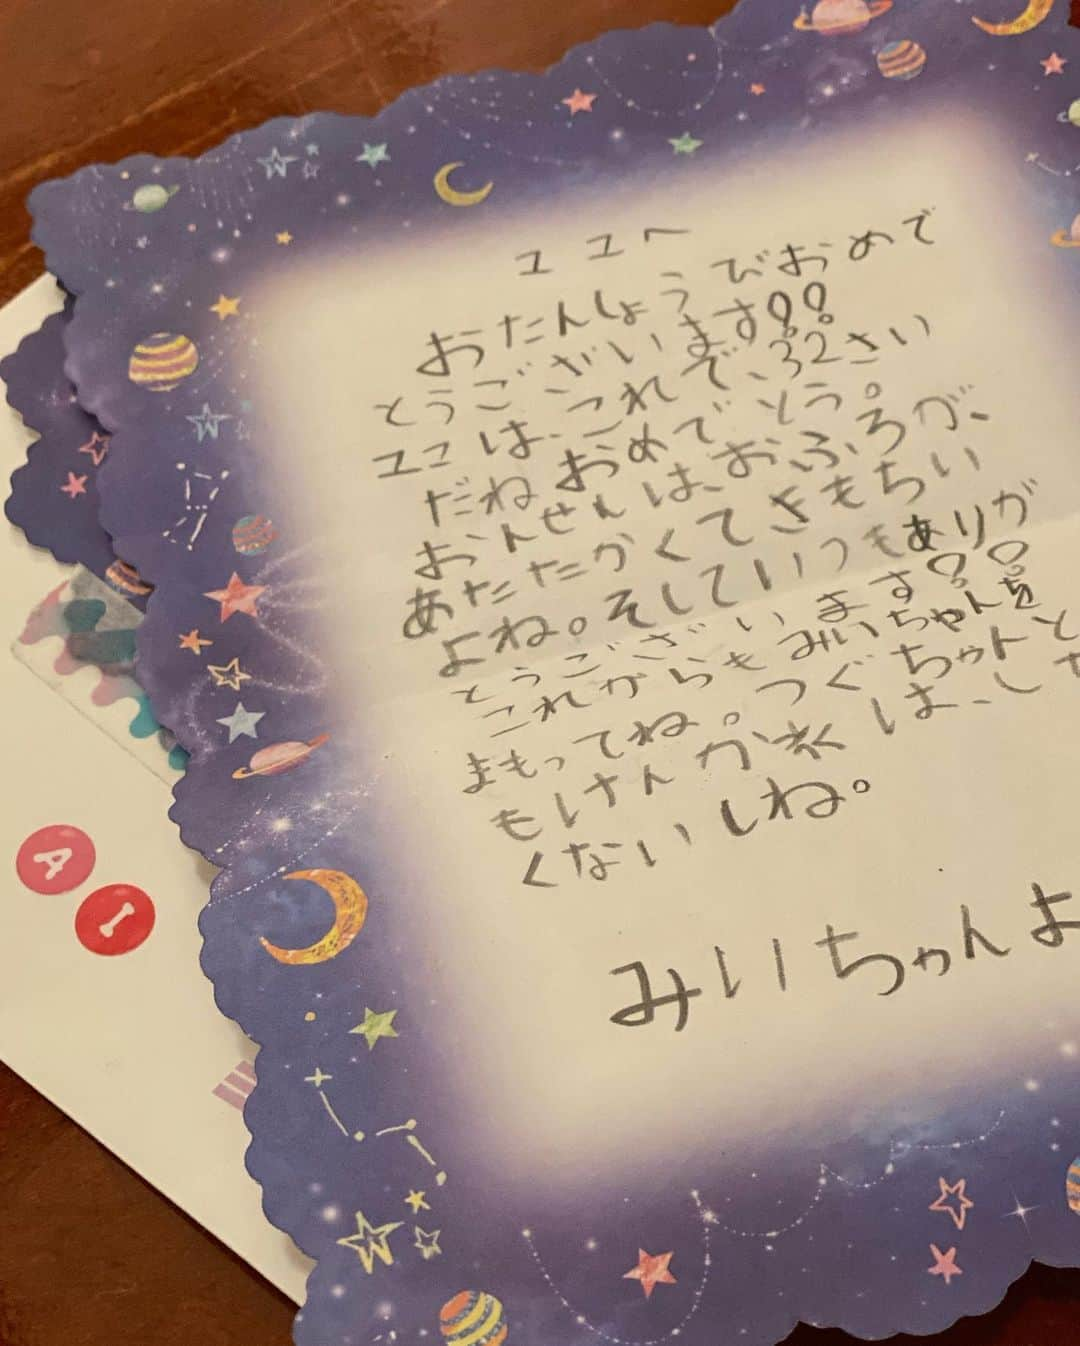 ユユへ
おたんじょうびおめで
とうございます!!
ユユは、これで、32さい
だねおめでとう。
おんせんは、おふろが、
あたたかくてきもちい
よね。そしていつもありが
とうございます!!
これからもみいちゃんを
まもってね。つぐちゃんと
もけんかは、した
くないしね。
みいちゃんよ
A
I